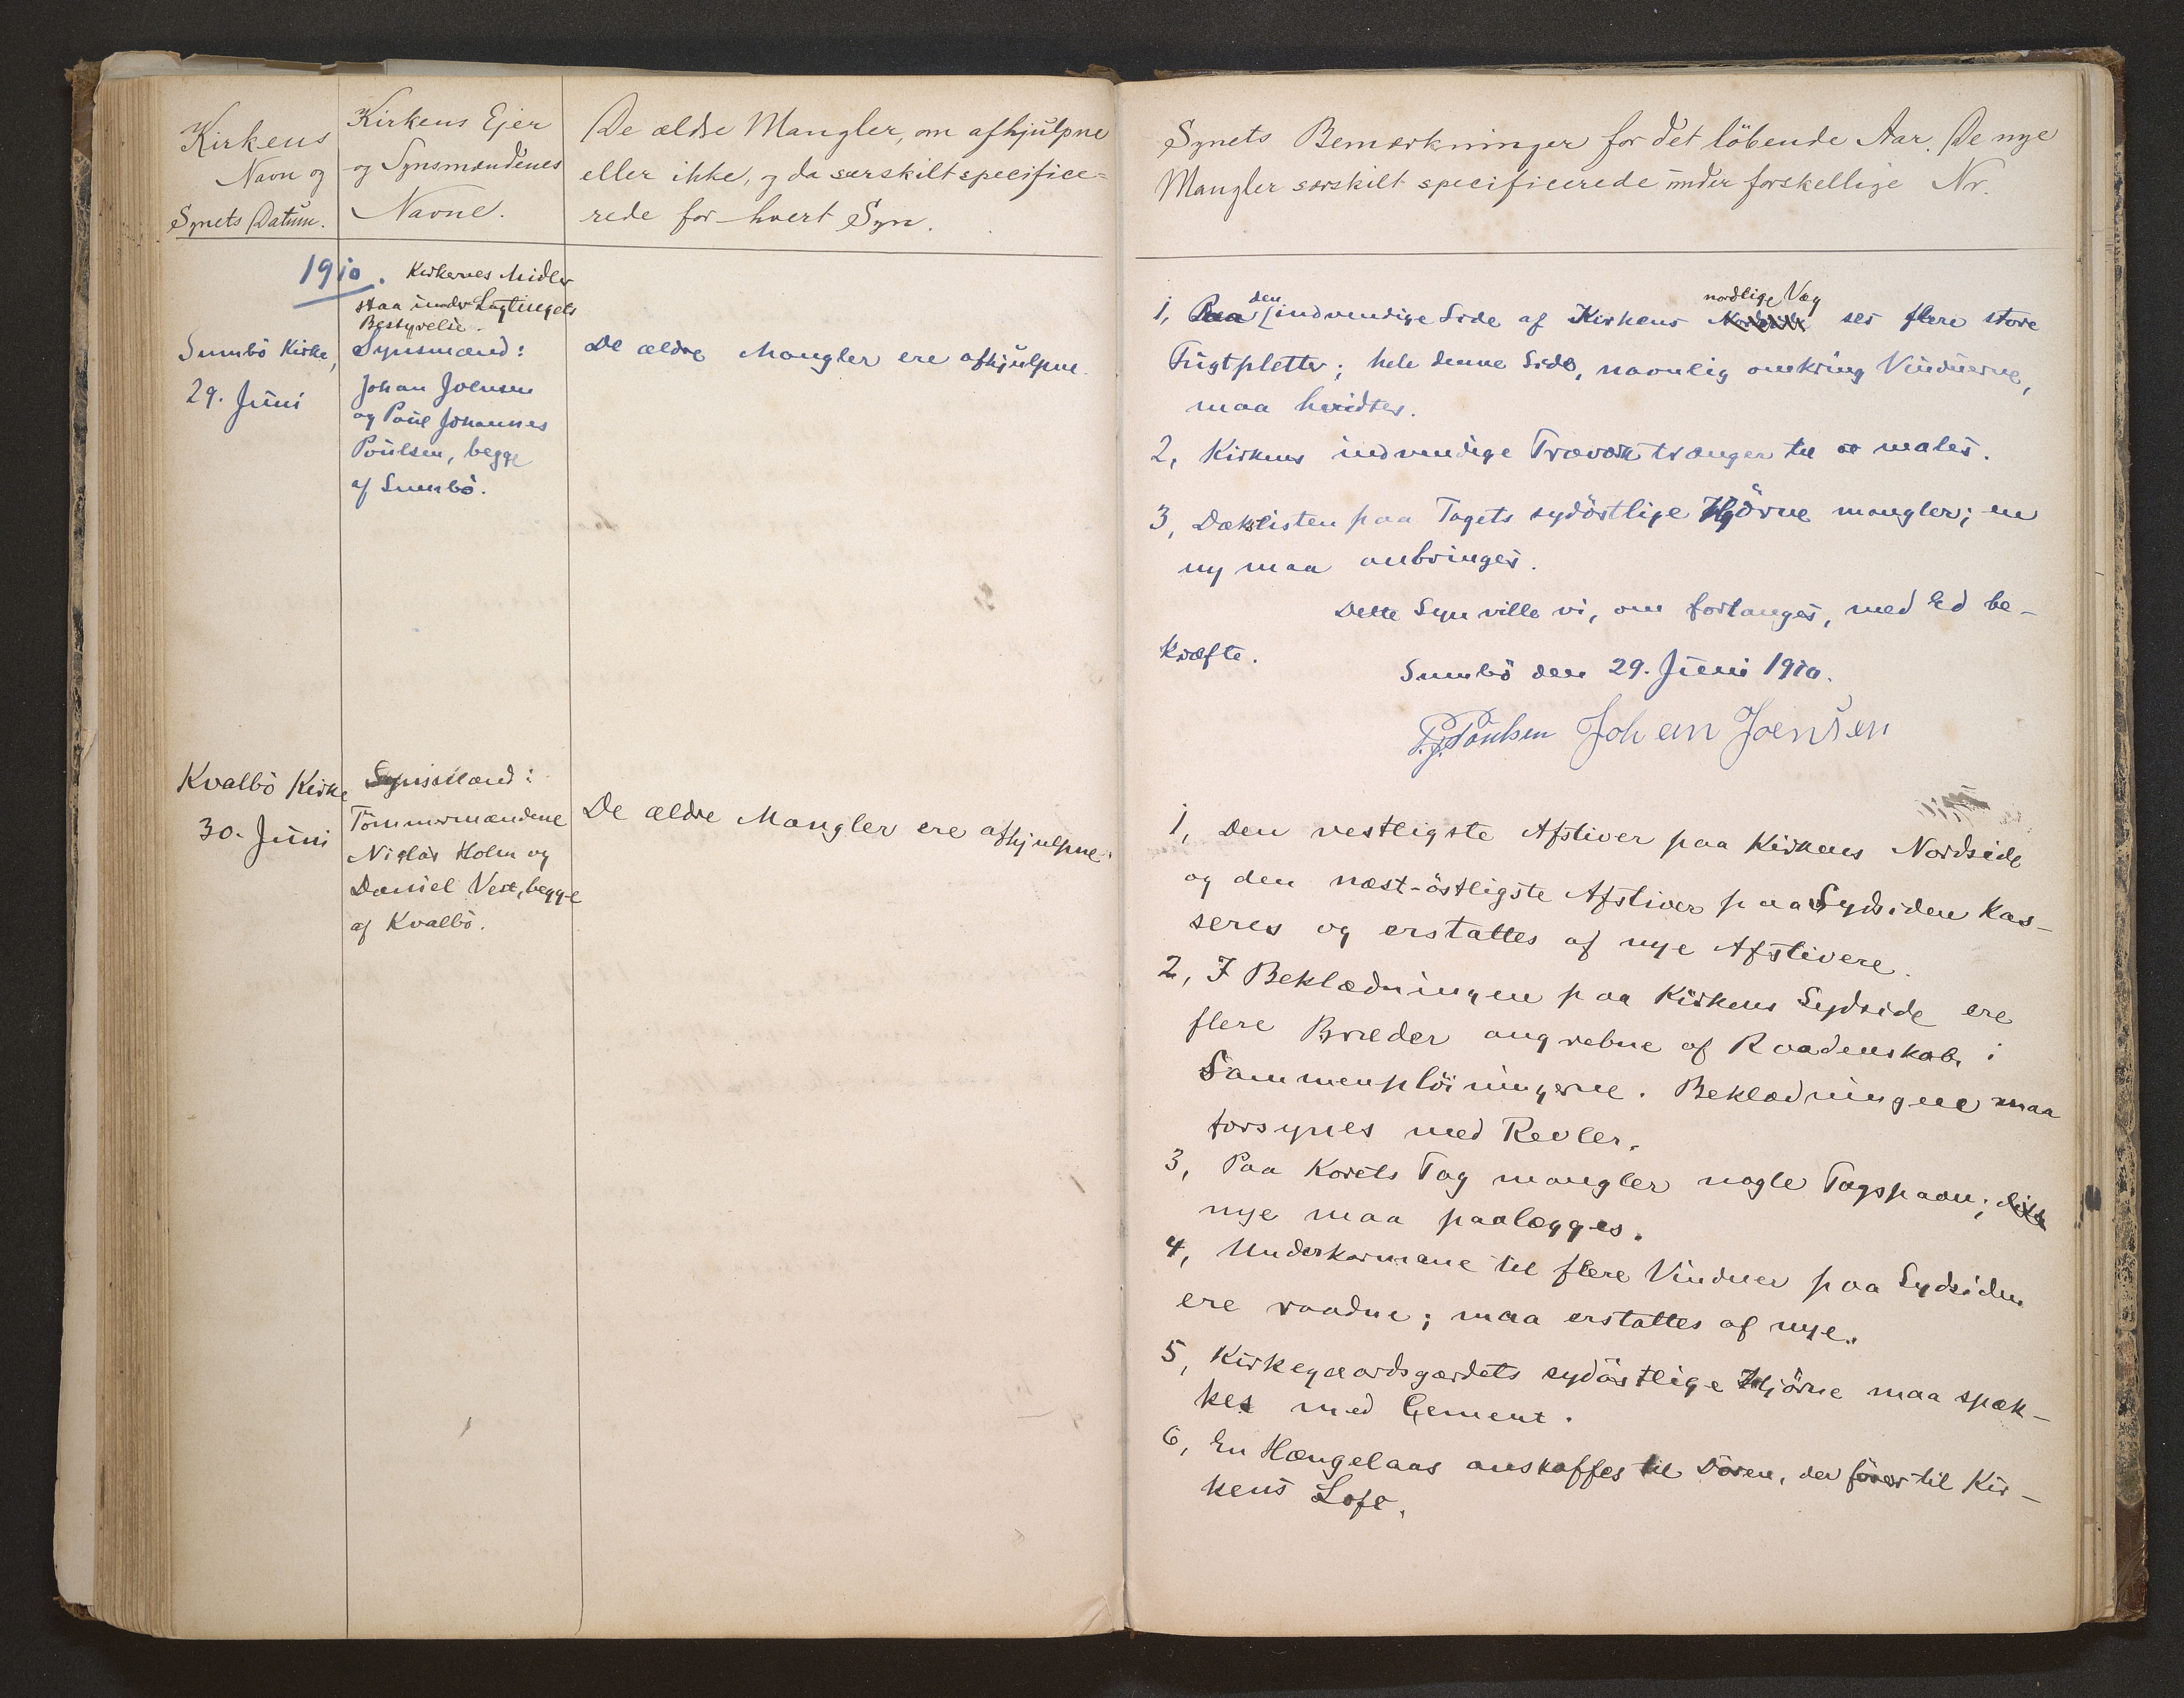 Kirkens
Navn og
Synets Datum.
Kirkens Ejer
og Synsmændenes
Navne.
De ældre Mangler, om afhjulpne
eller ikke, og da særskilt specifice=
rede for hvert Syn.
1910.
Kirkernes Midler
staa under Lagtingets
Bestyrelse.
Sumbö Kirke,
29. Juni
Synsmænd:
Johan Joensen
og Poul Johannes
Poulsen, begge
af Sumbö.
De ældre Mangler ere afhjulpne.
Kvalbö Kirke
30. Juni
Synsmænd:
Tömmermændene
Niclas Holm og
Daniel Vest, begge
af Kvalbö.
De ældre Mangler ere afhjulpne.
Synets Bemærkninger for det löbende Aar. De nye
Mangler særskilt specificerede under forskellige Nr.
den
nordlige Væg
1, Paa indvendige Side af Kirkens ses flere store
Fugtpletter; hele denne Side, navnlig omkring Vinduerne,
maa hvidtes.
2, Kirkens indvendige Træværk trænger til at males.
3, Dæklisten paa Tagets sydöstlige Hjörne mangler; en
ny maa anbringes.
Dette Syn ville vi, om forlanges, med Ed be-
kræfte.
Sumbö den 29. Juni 1910.
P.J. Poulsen Johan Joensen
1, Den vestligste Afstiver paa Kirkens Nordside
og den næst-östligste Afstiver paa Sydsiden kas-
seres og erstattes af nye Afstivere.
2, I Beklædningen paa Kirkens Sydside ere
flere Bræder angrebne af Raadenskab i
Sammenplöiningerne. Beklædningen maa
forsynes med Revler.
3, Paa Korets Tag mangler nogle Tagspaan;
nye maa paalægges.
4, Underkarmene til flere Vinduer paa Sydsiden
ere raadne; maa erstattes af nye.
5, Kirkegaardsgærdets sydöstlige Hjörne maa spæk-
kes med Cement.
6, En Hængelaas anskaffes til Dören, der förer til Kir-
kens Loft.